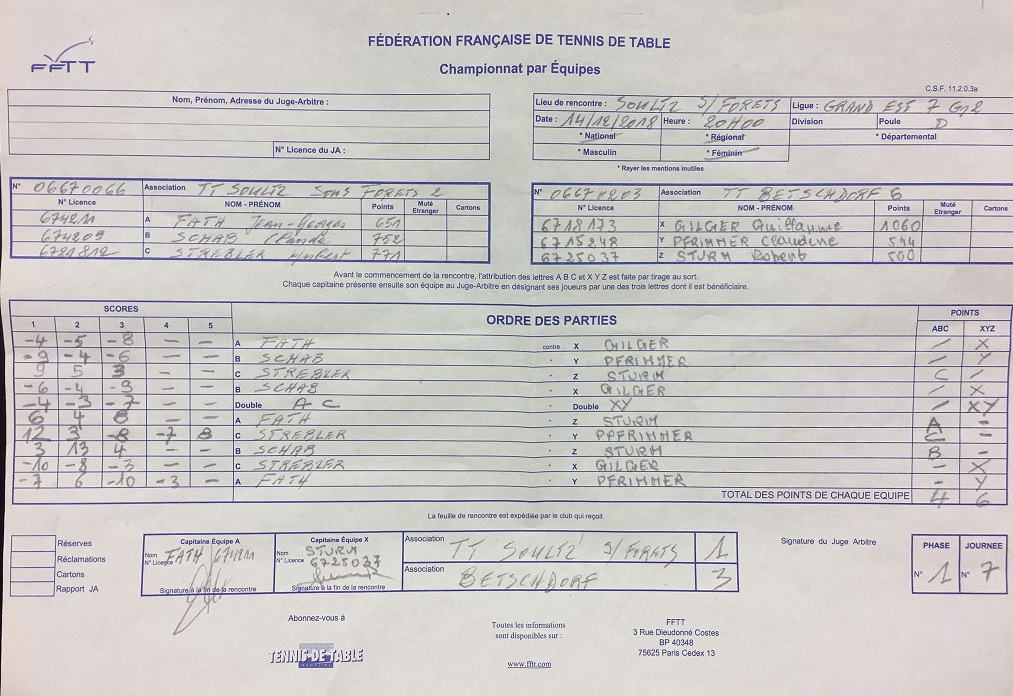 FFTT
FÉDÉRATION FRANÇAISE DE TENNIS DE TABLE
Championnat par Équipes
C.S.F. 11.2.0.3a
Nom, Prénom, Adresse du Juge-Arbitre :
N° Licence du JA :
Lieu de rencontre : SOULTZ S/FORETS Ligue : GRAND EST 7 Gr2
Date : 14/12/2018 Heure : 20H00 Division Poule D
* National * Régional * Départemental
* Masculin * Féminin
* Rayer les mentions inutiles
N° 06670066 Association TT SOULTZ SOUS FORETS 2
N° Licence NOM - PRÉNOM Points Muté Etranger Cartons
674211 A FATH Jean-Georges 651
674209 B SCHAB Claude 752
6721812 C STREBLER Hubert 771
N° Association TT BETSCHDORF 6
N° Licence NOM - PRÉNOM Points Muté Etranger Cartons
6718173 X GILGER Guillaume 1060
6715248 Y PFRIMMER Claudine 544
6725037 Z STURM Robert 500
Avant le commencement de la rencontre, l'attribution des lettres A B C et X Y Z est faite par tirage au sort.
Chaque capitaine présente ensuite son équipe au Juge-Arbitre en désignant ses joueurs par une des trois lettres dont il est bénéficiaire.
SCORES ORDRE DES PARTIES POINTS
1 2 3 4 5 ABC XYZ
-4 -5 -8 — — A FATH contre X GILGER / X
-9 -4 -6 — — B SCHAB - Y PFRIMMER / Y
9 5 3 — — C STREBLER - Z STURM C /
-6 -4 -9 — — B SCHAB - X GILGER / X
-4 -3 -7 — — Double AC - Double XY / XY
6 4 8 — — A FATH - Z STURM A -
12 3 -8 -7 8 C STREBLER - Y PPFRIMMER C -
3 13 4 — — B SCHAB - Z STURM B -
-10 -8 -3 — — C STREBLER - X GILGER - X
-7 6 -10 -3 — A FATH - Y PFRIMMER - Y
TOTAL DES POINTS DE CHAQUE EQUIPE 4 6
La feuille de rencontre est expédiée par le club qui reçoit
Réserves
Réclamations
Cartons
Rapport JA
Capitaine Équipe A
Nom FATH 674211
N° Licence
Signature à la fin de la rencontre
Capitaine Équipe X
Nom STURM
N° Licence 6725037
Signature à la fin de la rencontre
Association TT SOULTZ S/FORETS 1
Association BETSCHDORF 3
Signature du Juge Arbitre
PHASE JOURNEE
N° 1 N° 7
Abonnez-vous à
TENNIS DE TABLE
Toutes les informations
sont disponibles sur :
www.fftt.com
FFTT
3 Rue Dieudonné Costes
BP 40348
75625 Paris Cedex 13